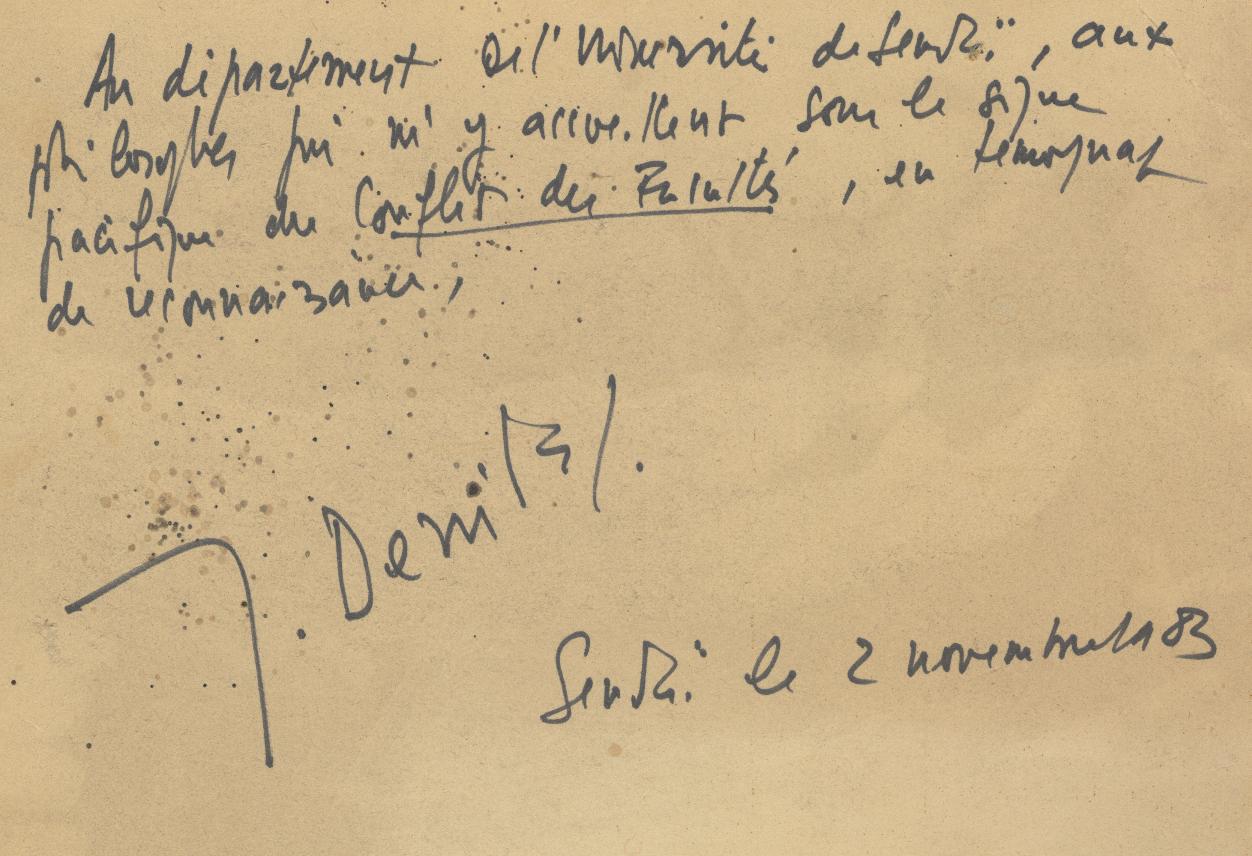 Au département de l'Université de Sendaï, aux
philosophes qui m'y accueillent sous le signe
pacifique du Conflit des Facultés, en témoignage
de reconnaissance,
J. Derrida.
Sendaï le 2 novembre 1983